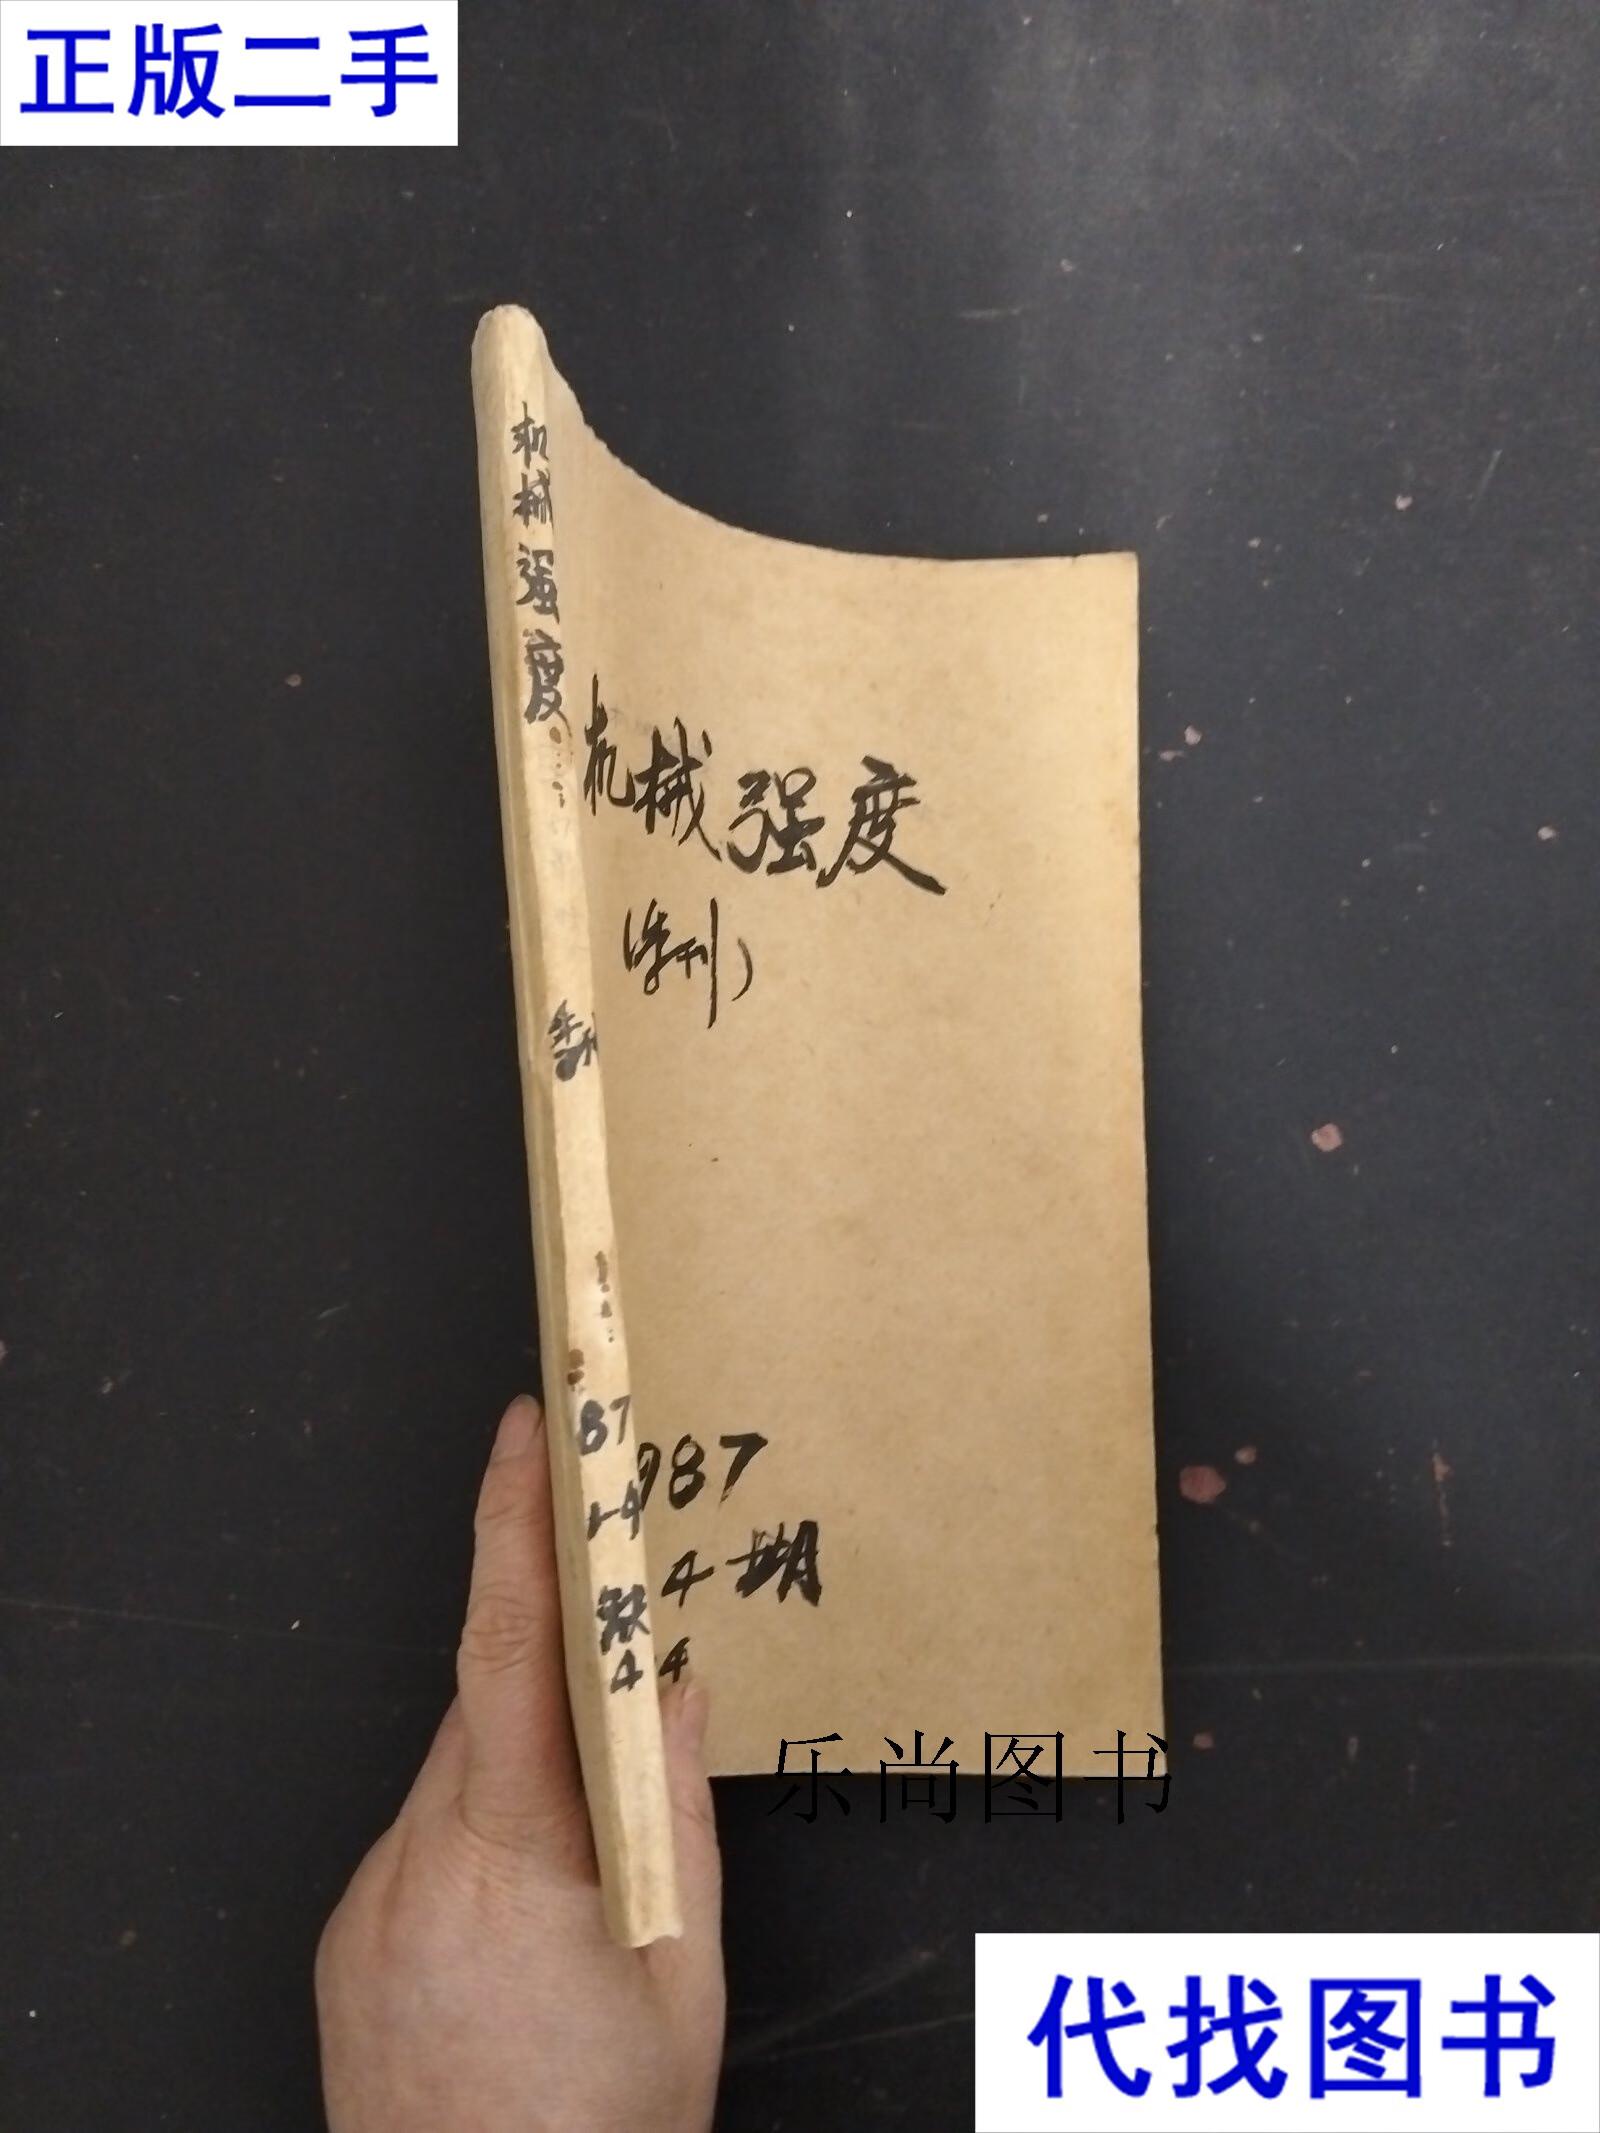 正版二手
机械强度
季刊
87
1-4
缺
4
机械强度
(季刊)
987
4期
4
乐尚图书
代找图书